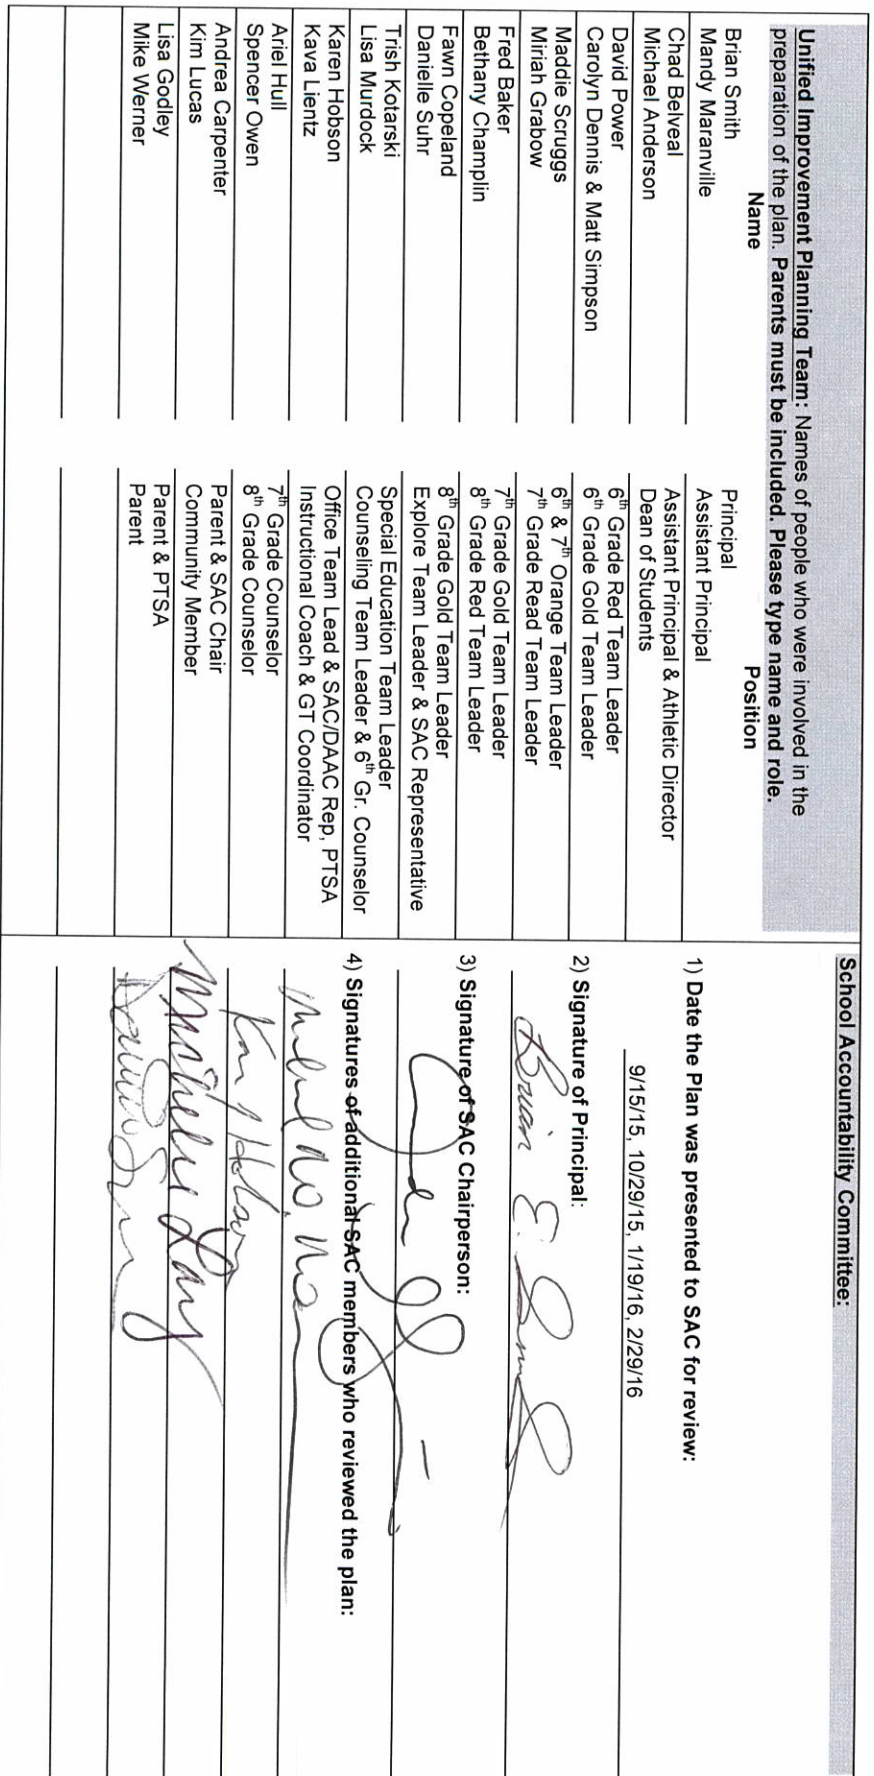 Unified Improvement Planning Team: Names of people who were involved in the
preparation of the plan. Parents must be included. Please type name and role.
Name Position
Brian Smith Principal
Mandy Maranville Assistant Principal
Chad Belveal Assistant Principal & Athletic Director
Michael Anderson Dean of Students
David Power 6th Grade Red Team Leader
Carolyn Dennis & Matt Simpson 6th Grade Gold Team Leader
Maddie Scruggs 6th & 7th Orange Team Leader
Miriah Grabow 7th Grade Read Team Leader
Fred Baker 7th Grade Gold Team Leader
Bethany Champlin 8th Grade Red Team Leader
Fawn Copeland 8th Grade Gold Team Leader
Danielle Suhr Explore Team Leader & SAC Representative
Trish Kotarski Special Education Team Leader
Lisa Murdock Counseling Team Leader & 6th Gr. Counselor
Karen Hobson Office Team Lead & SAC/DAAC Rep, PTSA
Kava Lientz Instructional Coach & GT Coordinator
Ariel Hull 7th Grade Counselor
Spencer Owen 8th Grade Counselor
Andrea Carpenter Parent & SAC Chair
Kim Lucas Community Member
Lisa Godley Parent & PTSA
Mike Werner Parent
School Accountability Committee:
1) Date the Plan was presented to SAC for review:
9/15/15, 10/29/15, 1/19/16, 2/29/16
2) Signature of Principal:
Brian E. Smith
3) Signature of SAC Chairperson:
4) Signatures of additional SAC members who reviewed the plan:
Karen Hobson
Michelle Lang